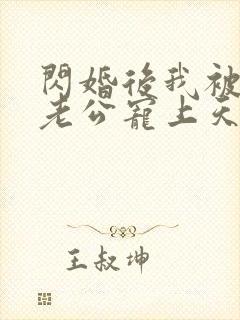 閃婚後我被
老公寵上天
王叔坤